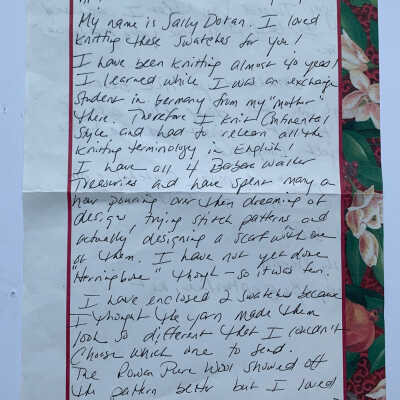 My name is Sally Dotan. I loved
knitting these swatches for you!
I have been knitting almost 40 years!
I learned while I was an exchange
student in Germany from my "mother"
there. Therefore I knit Continental
Style and had to relearn all the
knitting terminology in English!
I have all 4 Barbara Walker
Treasuries and have spent many an
hour pouring over them dreaming of
designs, trying stitch patterns and
actually designing a scarf with one
of them. I have not yet done
"Herringbone" though – so it was fun.
I have enclosed 2 swatches because
I thought the yarn made them
look so different that I couldn't
choose which one to send.
The Rowan Pure Wool showed off
the pattern better but I loved